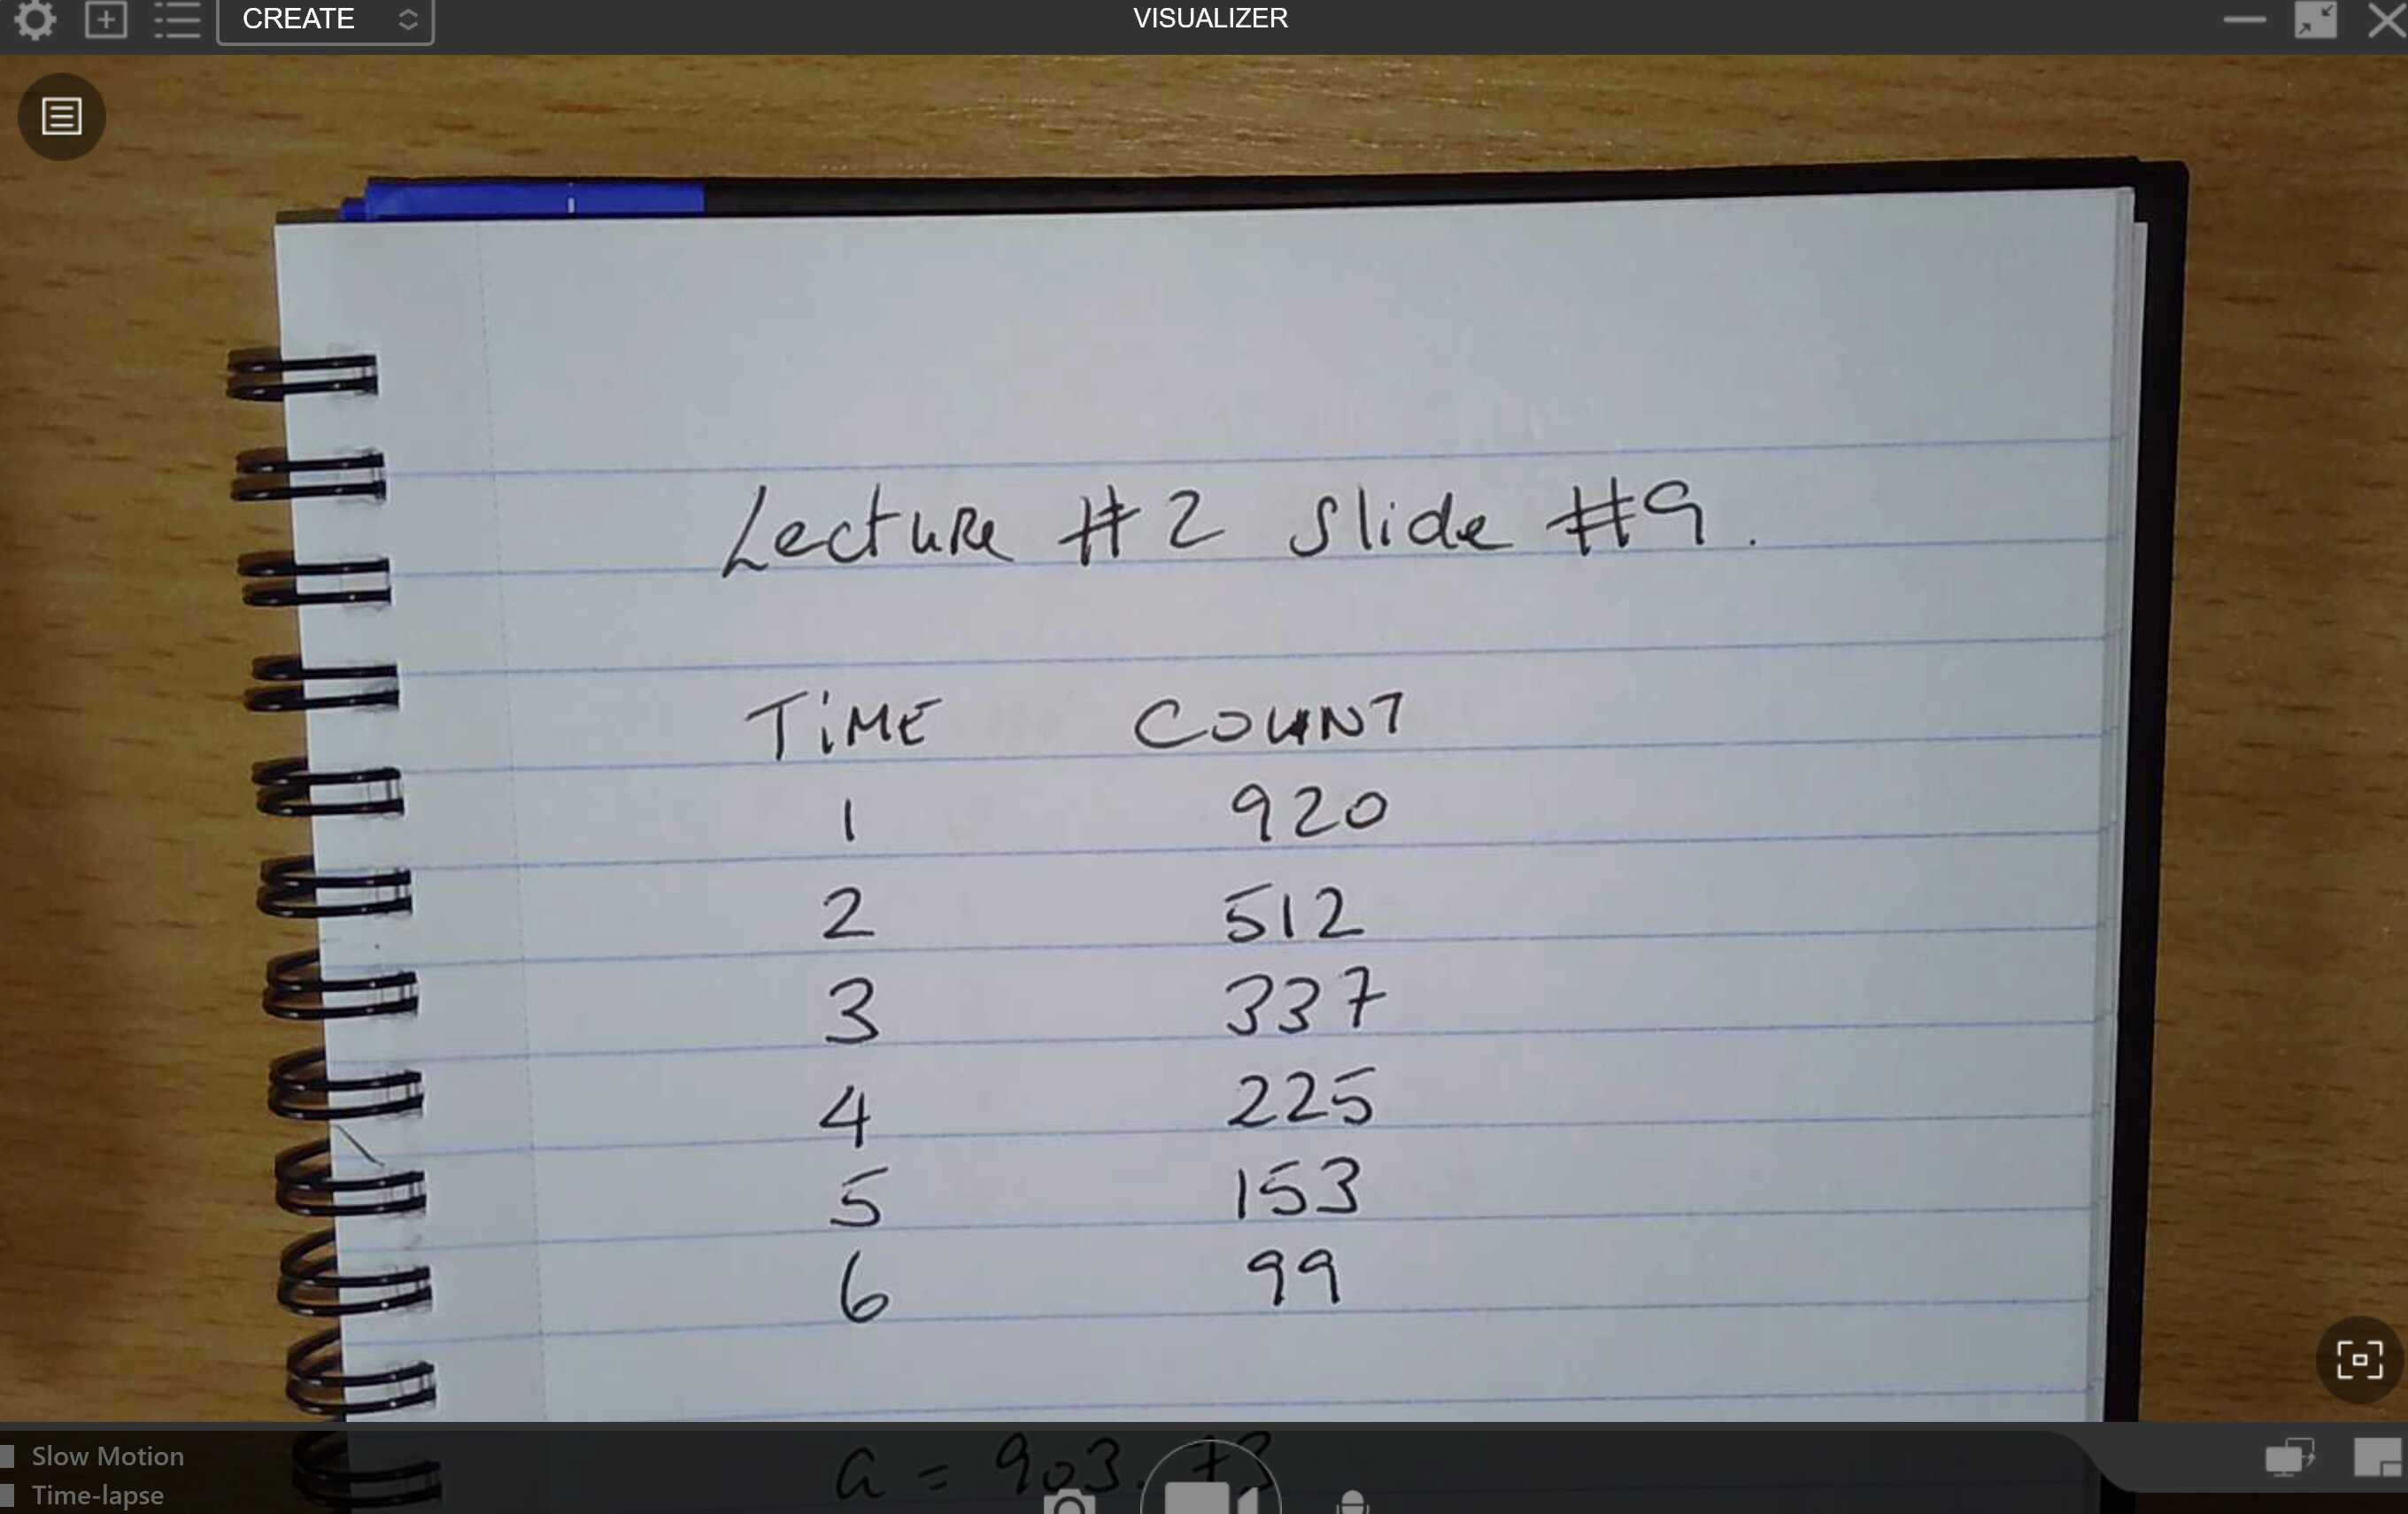 CREATE
VISUALIZER
Lecture #2 Slide #9.
TiME COUNT
1 920
2 512
3 337
4 225
5 153
6 99
a = 903.73
Slow Motion
Time-lapse